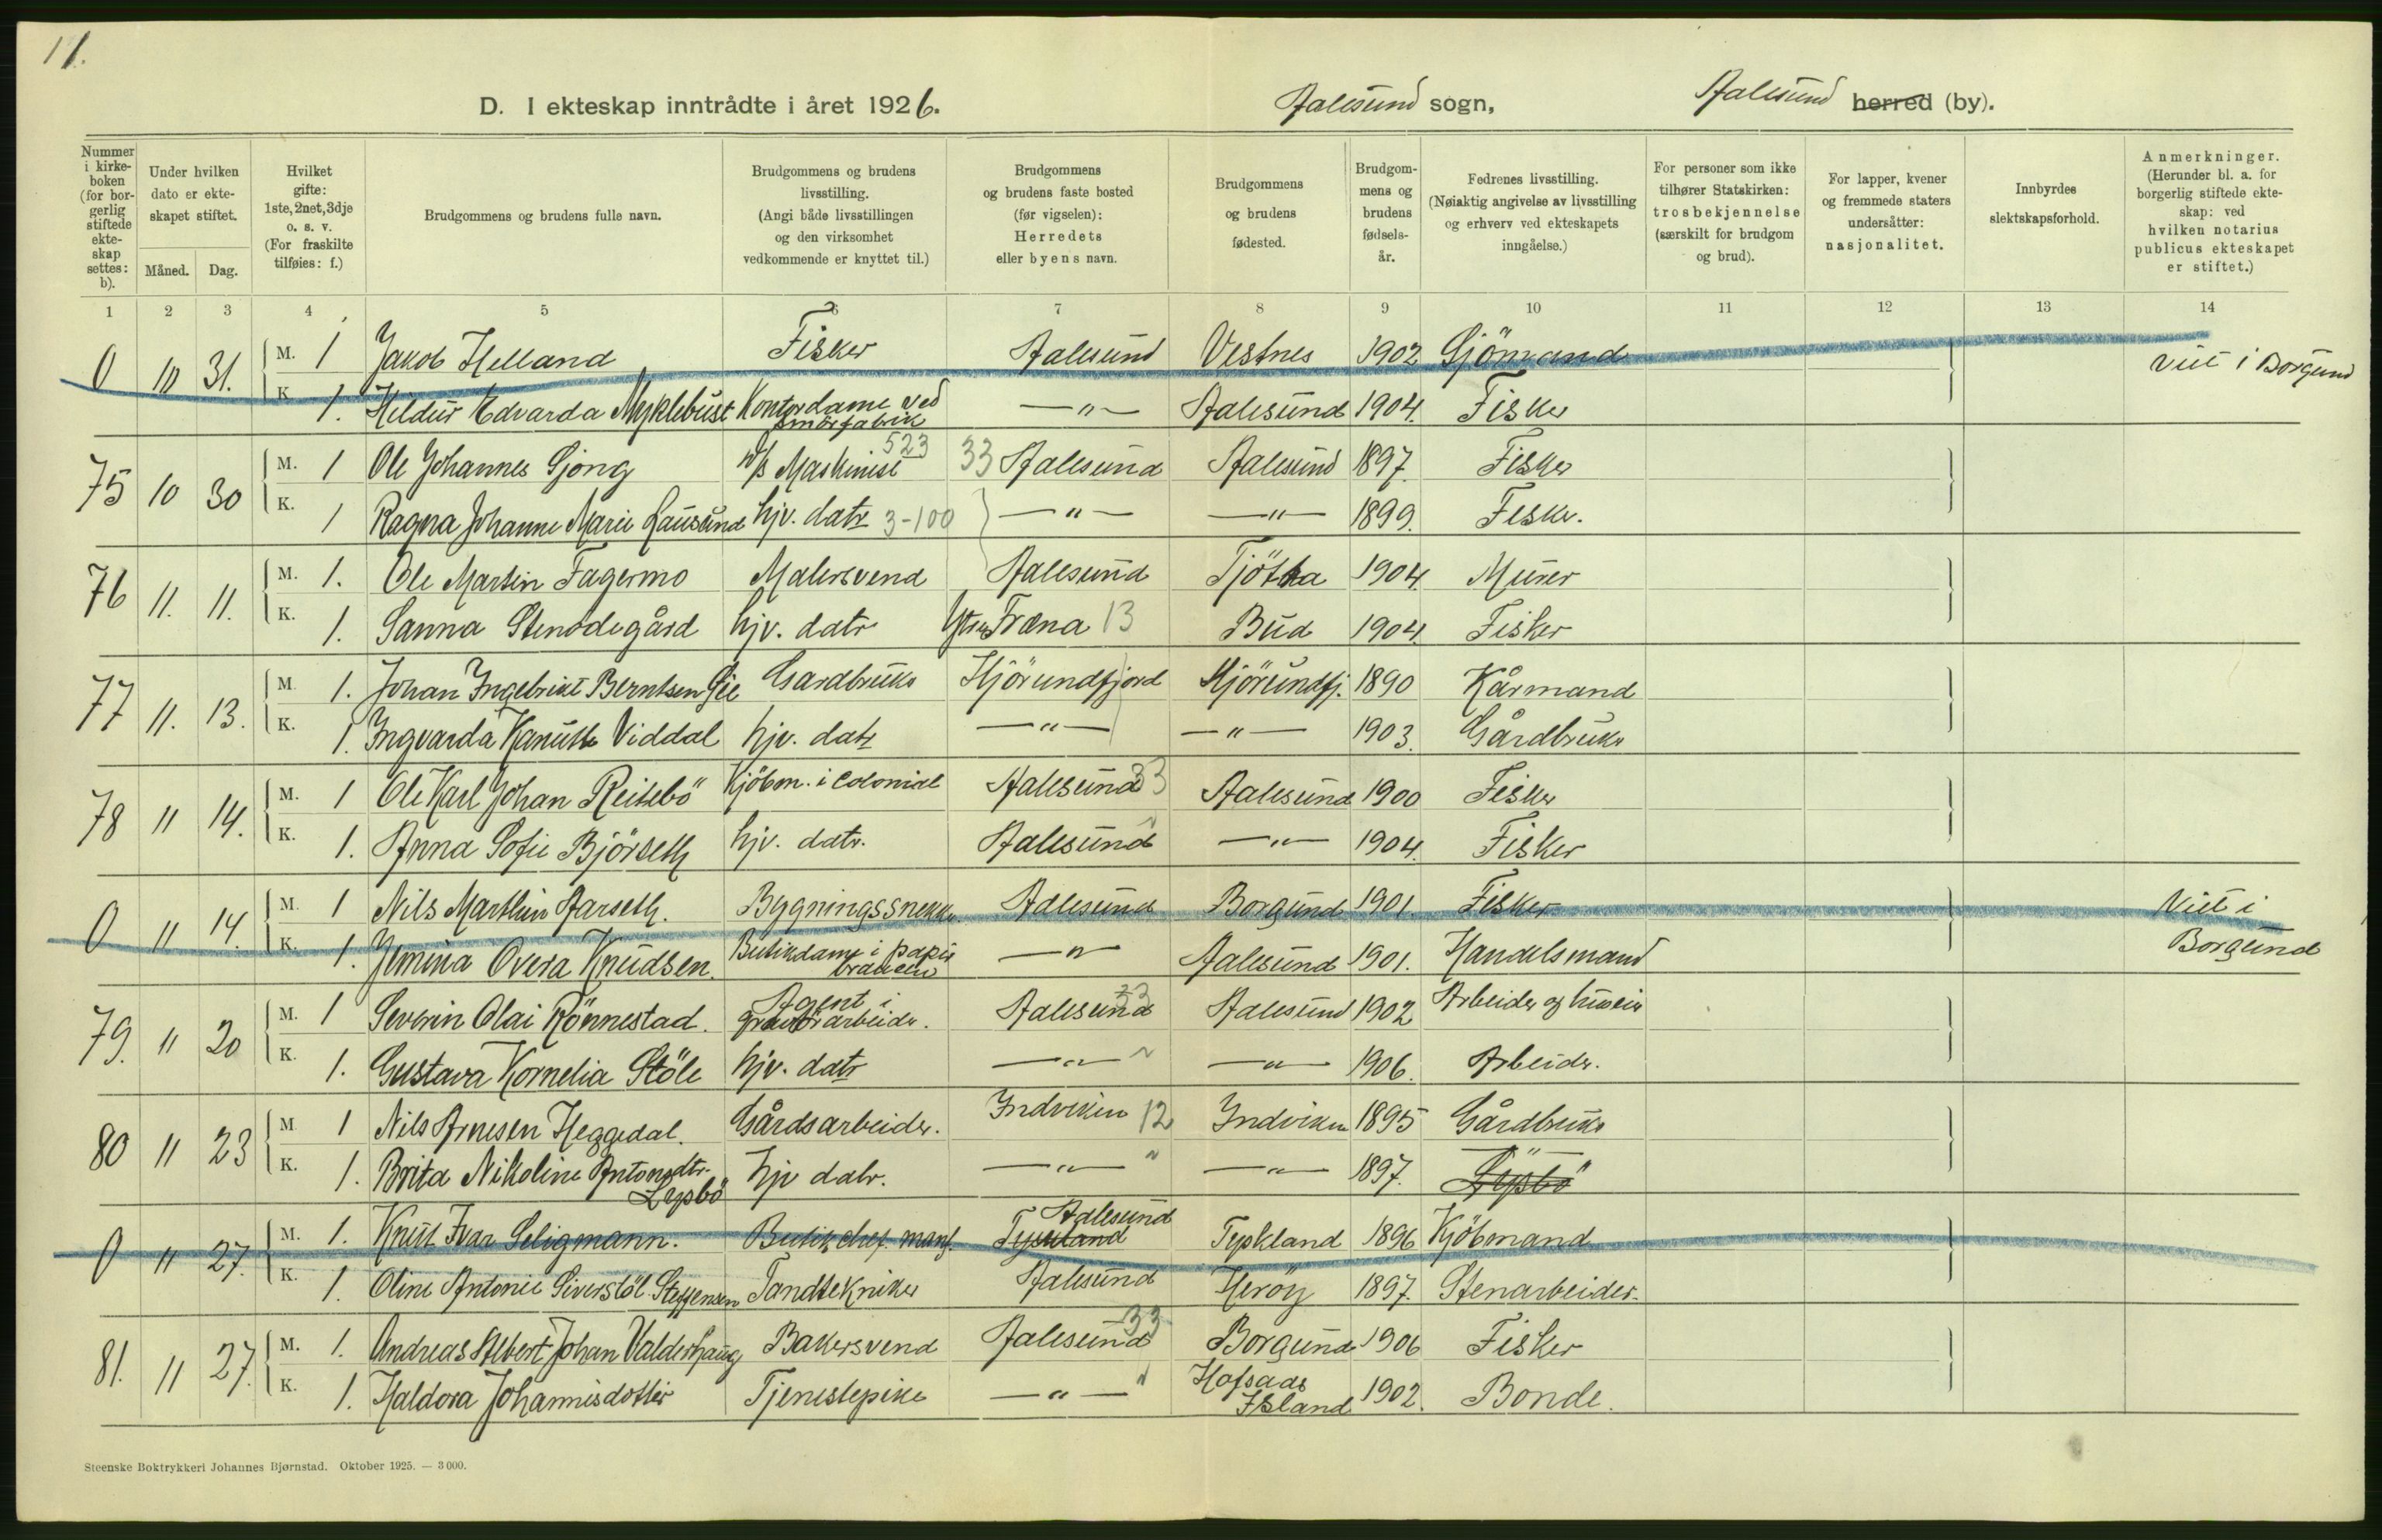 11.
D. I ekteskap inntrådte i året 1926.
Aalesund sogn,
Aalesund herred (by).
Nummer i kirke-boken (for bor-gerlig stiftede ekte-skap settes: b).
Under hvilken dato er ekte-skapet stiftet.
Måned. Dag.
Hvilket gifte: 1ste, 2net, 3dje o. s. v. (For fraskilte tilføies: f.)
Brudgommens og brudens fulle navn.
Brudgommens og brudens livsstilling. (Angi både livsstillingen og den virksomhet vedkommende er knyttet til.)
Brudgommens og brudens faste bosted (før vigselen): Herredets eller byens navn.
Brudgommens og brudens fødested.
Brudgom-mens og brudens fødsels-år.
Fedrenes livsstilling. (Nøiaktig angivelse av livsstilling og erhverv ved ekteskapets inngåelse.)
For personer som ikke tilhører Statskirken: trosbekjennelse (særskilt for brudgom og brud).
For lapper, kvener og fremmede staters undersåtter: nasjonalitet.
Innbyrdes slektskapsforhold.
Anmerkninger. (Herunder bl. a. for borgerlig stiftede ekte-skap: ved hvilken notarius publicus ekteskapet er stiftet.)
1 2 3 4 5 6 7 8 9 10 11 12 13 14
0 10 31. M. 1 Jakob Helland Fisker Aalesund Vestnes 1902 Sjömand Viet i Borgund
K. 1. Hildur Edvarda Myklebust Kontordame ved smörfabrik —"— Aalesund 1904. Fisker
75 10 30 M. 1 Ole Johannes Gjöng Maskinist 523 33 Aalesund Aalesund 1897. Fisker
K. 1 Ragna Johanne Marie Lausund hjv. datr 3-100 —"— —"— 1899. Fisker.
76 11. 11. M. 1. Ole Martin Fagermo Malersvend Aalesund Tjötta 1904. Murer
K. 1. Sanna Stenödegård hjv. datr Ytre Fræna 13 Bud 1904. Fisker
77 11. 13. M. 1. Johan Ingebrikt Berntsen Sie Gardbruker Hjörundfjord Hjörundfj. 1890 Kårmand
K. 1. Ingvarda Kanutte Viddal hjv. datr —"— —"— 1903. Gårdbruker
78 11 14. M. 1 Ole Karl Johan Reitebö Kjöbm. i Colonial Aalesund 33 Aalesund 1900 Fisker
K. 1. Anna Sofie Björseth hjv. datr. Aalesund —"— 1904. Fisker
0 11 14. M. 1 Nils Marthin Aarseth. Bygningssnekker Aalesund Borgund 1901. Fisker Viet i Borgund
K. 1. Jemina Overa Knudsen. Butikdame i papir branchen —"— Aalesund 1901. Handelsmand
79. 11 20 M. 1 Severin Olai Rönnestad. Agent i gravörarbeide. Aalesund 33 Aalesund 1902 Arbeider og huseier
K. 1. Gustava Kornelia Stöle hjv. datr —"— " —"— 1906. Arbeider.
80 11 23 M. 1 Nils Arnesen Heggedal. Gårdsarbeider. Indviken 12 Indviken 1895 Gårdbruker
K. 1. Brita Nikoline Antonsdtr. Lysbö hjv datr. —"— " —"— 1897. —"— Lysbö
0 11 27. M. 1. Knut Ivar Seligmann. Butikchef. manf. Tyskland Aalesund Tyskland 1896 Kjöbmand
K. 1. Oline Antonie Siverstöl Steffensen Tandtekniker Aalesund Heröy 1897. Stenarbeider.
81. 11 27. M. 1. Andreas Albert Johan Valderhaug Bakersvend Aalesund 33 Borgund 1906 Fisker
K. 1. Haldora Johannisdotter Tjenestepike —"— " Hofsaas Island 1902. Bonde.
Steenske Boktrykkeri Johannes Bjørnstad. Oktober 1925. — 3000.